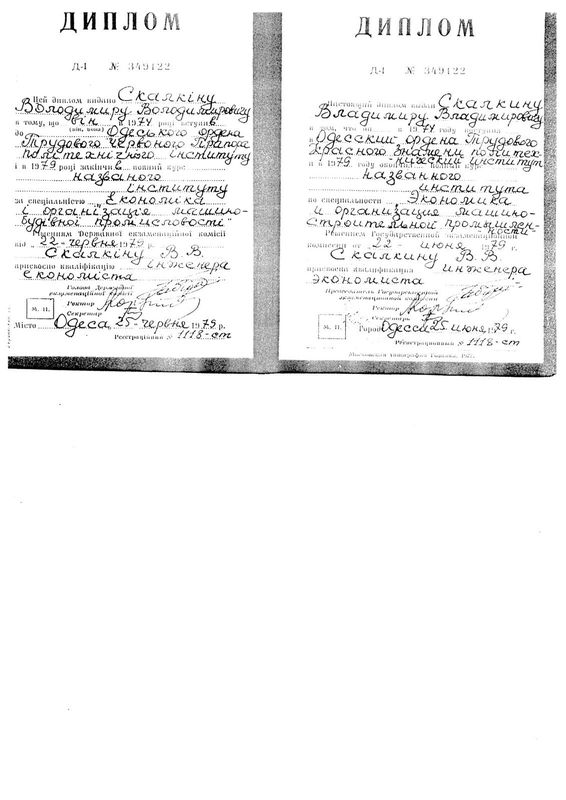 ДИПЛОМ
Д-І № 349122
Цей диплом видано Скалкіну
Володимиру Володимировичу
в тому, що він в 1974 році вступив
до (він, вона) Одеського ордена
Трудового Червоного Прапора
політехнічного інституту
і в 1979 році закінчив повний курс
названого
інституту
за спеціальністю „Економіка
і організація машино-
будівної промисловості"
Рішенням Державної екзаменаційної комісії
від 22 - червня 1979 р.
Скалкіну В. В.
присвоєно кваліфікацію інженера
економіста
Голова Державної
екзаменаційної комісії
Ректор
Секретар
М. П.
Місто Одеса, 25 - червня 1979 р.
Реєстраційний № 1118-ст
ДИПЛОМ
Д-І № 349122
Настоящий диплом выдан Скалкину
Владимиру Владимировичу
в том, что он в 1974 году поступил
в Одесский ордена Трудового
Красного Знамени политех-
нический институт
и в 1979 году окончил полный курс
названного
института
по специальности „Экономика
и организация машино-
строительной промышлен-
ности"
Решением Государственной экзаменационной
комиссии от 22 - июня 1979 г.
Скалкину В. В.
присвоена квалификация инженера
экономиста
Председатель Государственной
экзаменационной комиссии
Ректор
Секретарь
М. П.
Город Одесса 25 июня 1979 г.
Регистрационный № 1118-ст
Московская типография Гознака. 1977.